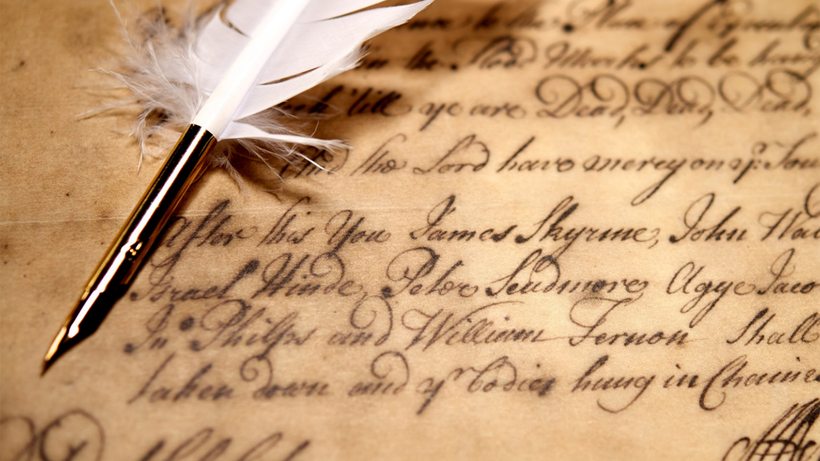 to the Place of
the Said Months to be hang
'till ye are Dead, Dead, Dead,
And the Lord have mercy on yr. Sou
After this You James Skyrme, John
Israel Hinde, Peter Scudmore Agge Jaco
Jno Philps and William Fernon Shall
taken down and yr bodies hung in Chaines